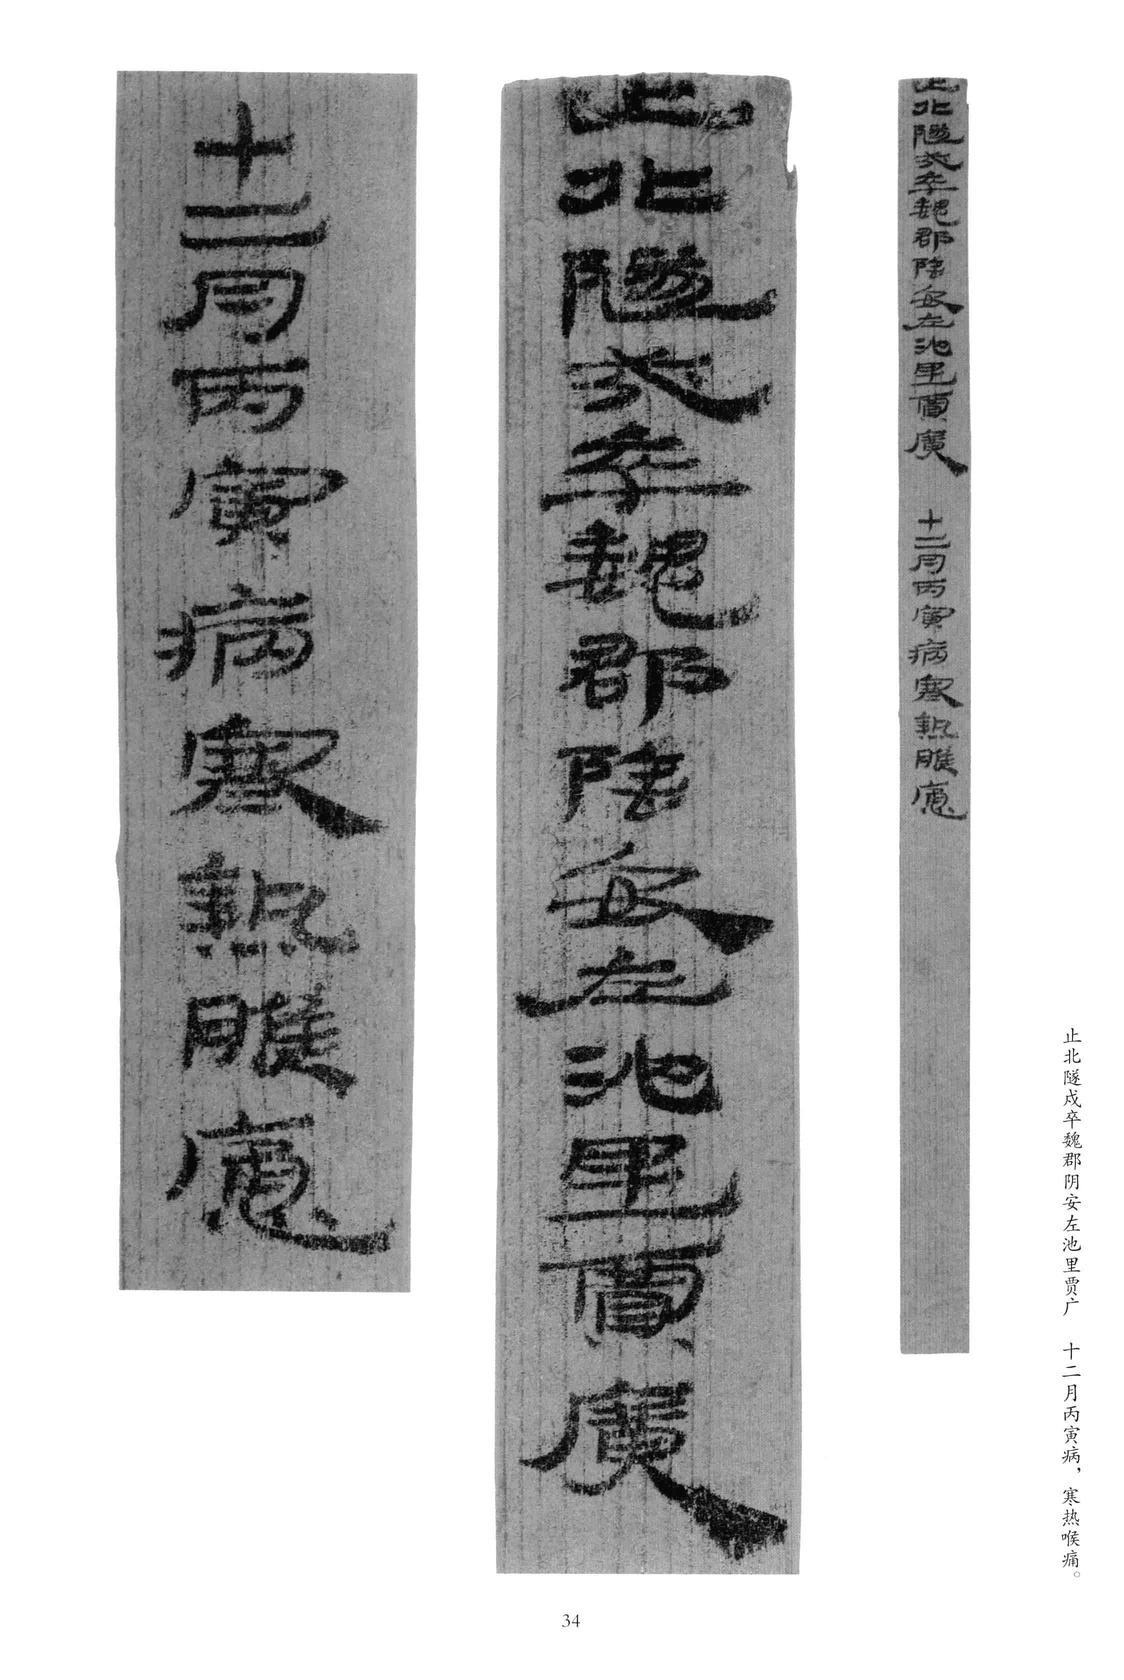 止北隧戍卒魏郡阴安左池里贾广　十二月丙寅病，寒热喉痛。
止北隧戍卒魏郡陰安左池里賈廣　十二月丙寅病寒熱喉痛
止北隧戍卒魏郡陰安左池里賈廣
十二月丙寅病寒熱喉痛
34